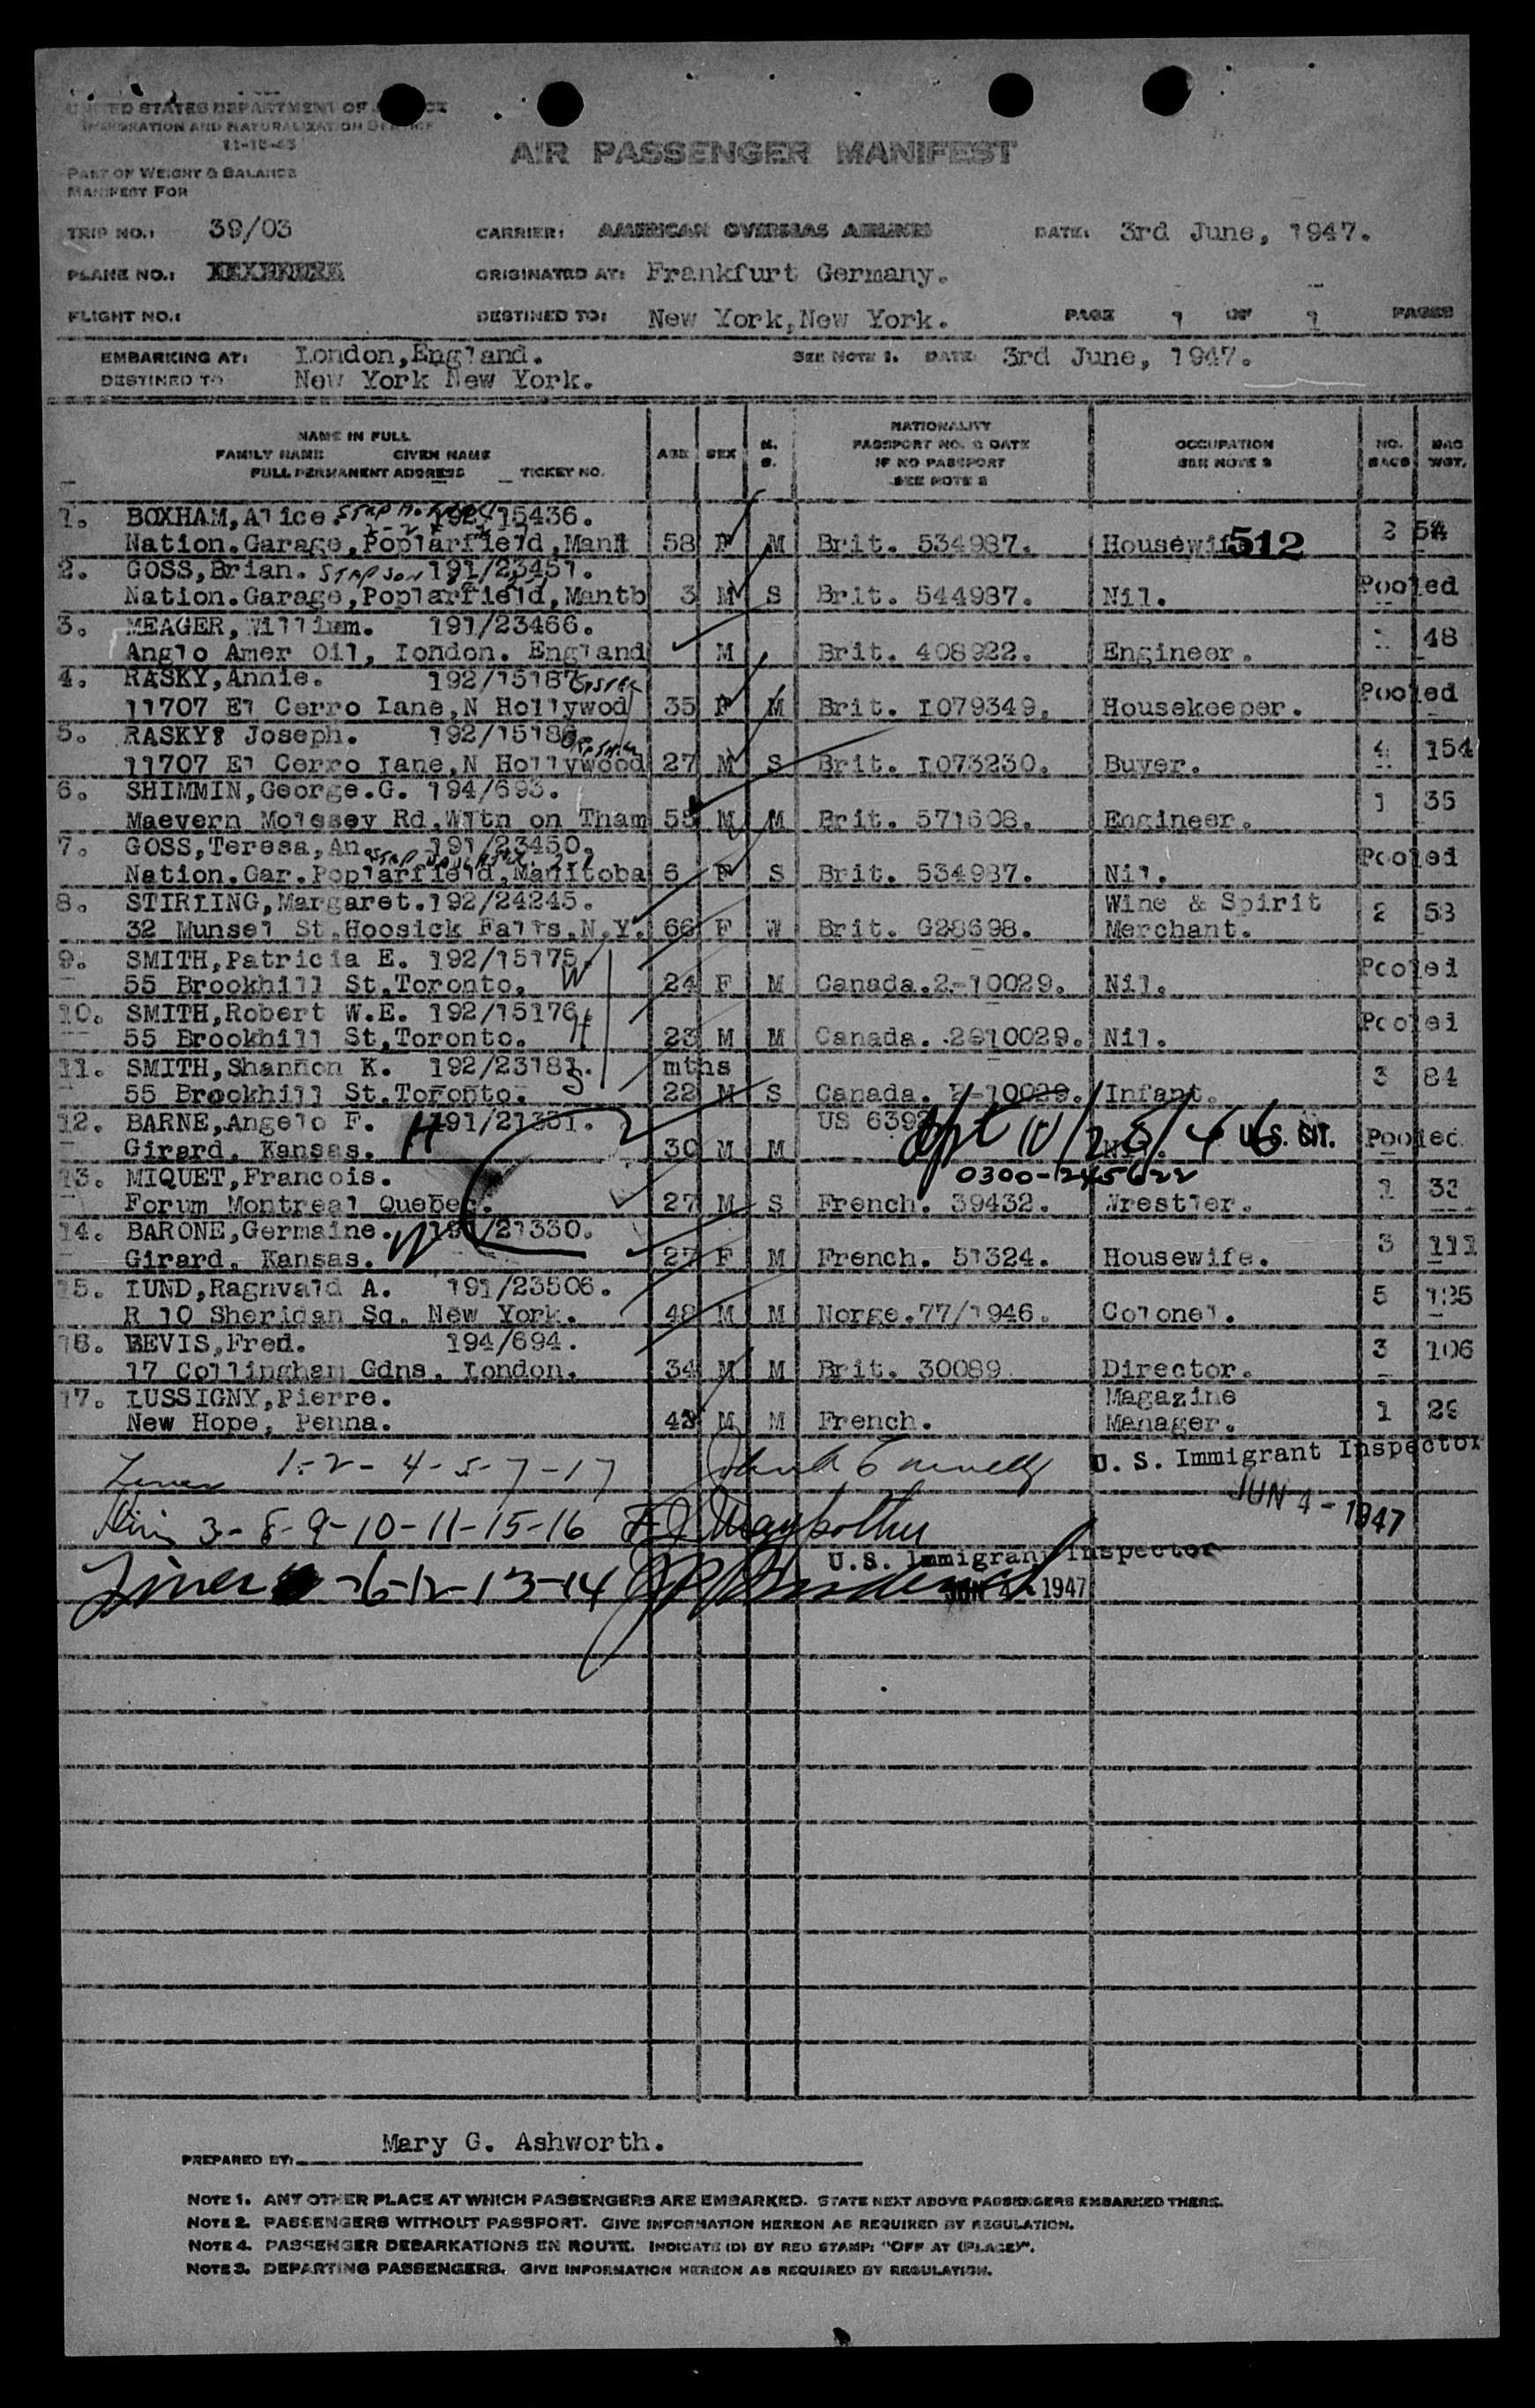 UNITED STATES DEPARTMENT OF JUSTICE
IMMIGRATION AND NATURALIZATION SERVICE
11-10-43
AIR PASSENGER MANIFEST
PART OF WEIGHT & BALANCE
MANIFEST FOR
TRIP NO.: 39/03 CARRIER: AMERICAN OVERSEAS AIRLINES DATE: 3rd June, 1947.
PLANE NO.: ORIGINATED AT: Frankfurt Germany.
FLIGHT NO.: DESTINED TO: New York,New York. PAGE 1 OF 1 PAGES
EMBARKING AT: London,England. SEE NOTE 1. DATE 3rd June, 1947.
DESTINED TO New York New York.
NAME IN FULL
FAMILY NAME GIVEN NAME
FULL PERMANENT ADDRESS TICKET NO.
AGE SEX M. S.
NATIONALITY
PASSPORT NO. & DATE
IF NO PASSPORT
SEE NOTE 2
OCCUPATION
SEE NOTE 3
NO. BAGS BAG WGT.
1. BOXHAM,Alice. STEP MOTHER 192/15436.
Nation.Garage,Poplarfield,Mant 58 F M Brit. 534987. Housewife 512 2 54
2. GOSS,Brian. STEP SON 191/23451.
Nation.Garage,Poplarfield,Mantb 3 M S Brit. 544987. Nil. Pooled
3. MEAGER,William. 191/23466.
Anglo Amer Oil, London. England M Brit. 408922. Engineer. 48
4. RASKY,Annie. 192/15187
11707 El Cerro Lane,N Hollywod 35 F M Brit. I079349. Housekeeper. Pooled
5. RASKY8 Joseph. 192/15186
11707 El Cerro Lane,N Hollywood 27 M S Brit. I073230. Buyer. 4 154
6. SHIMMIN,George.G. 194/693.
Maevern Molesey Rd.Wltn on Tham 55 M M Brit. 571608. Engineer. 1 35
7. GOSS,Teresa,An. STEP DAUGHTER 191/23450.
Nation.Gar.Poplarfield,Manitoba 6 F S Brit. 534987. Nil. Pooled
8. STIRLING,Margaret.192/24245.
32 Munsel St.Hoosick Falls.N.Y. 66 F W Brit. G28698. Wine & Spirit Merchant. 2 53
9. SMITH,Patricia E. 192/15175.
55 Brookhill St,Toronto. W 24 F M Canada.2-10029. Nil. Pooled
10. SMITH,Robert W.E. 192/15176.
55 Brookhill St,Toronto. H 23 M M Canada. 2810029. Nil. Pooled
11. SMITH,Shannon K. 192/23181. mths
55 Brookhill St.Toronto. S 22 M S Canada. 2-10029. Infant. 3 84
12. BARNE,Angelo F. H 191/21331. US 639
Girard, Kansas. 30 M M U.S. CIT. Pooled
0300-245622
13. MIQUET,Francois.
Forum Montreal Quebec. 27 M S French. 39432. Wrestler. 1 33
14. BARONE,Germaine. W 191/21330.
Girard, Kansas. 27 F M French. 51324. Housewife. 3 111
15. LUND,Ragnvald A. 191/23506.
R 10 Sheridan Sq. New York. 48 M M Norge.77/1946. Colonel. 5
16. BEVIS,Fred. 194/694.
17 Collingham Gdns, London. 34 M M Brit. 30089 Director. 3 106
17. LUSSIGNY,Pierre.
New Hope, Penna. 43 M M French. Magazine Manager. 1 29
1-2-4-5-7-17 U. S. Immigrant Inspector
JUN 4 - 1947
3-8-9-10-11-15-16
U.S. Immigrant Inspector
-6-12-13-14 JUN 4 - 1947
PREPARED BY: Mary G. Ashworth.
NOTE 1. ANY OTHER PLACE AT WHICH PASSENGERS ARE EMBARKED. STATE NEXT ABOVE PASSENGERS EMBARKED THERE.
NOTE 2. PASSENGERS WITHOUT PASSPORT. GIVE INFORMATION HEREON AS REQUIRED BY REGULATION.
NOTE 4. PASSENGER DEBARKATIONS EN ROUTE. INDICATE (D) BY RED STAMP: "OFF AT (PLACE)".
NOTE 3. DEPARTING PASSENGERS. GIVE INFORMATION HEREON AS REQUIRED BY REGULATION.